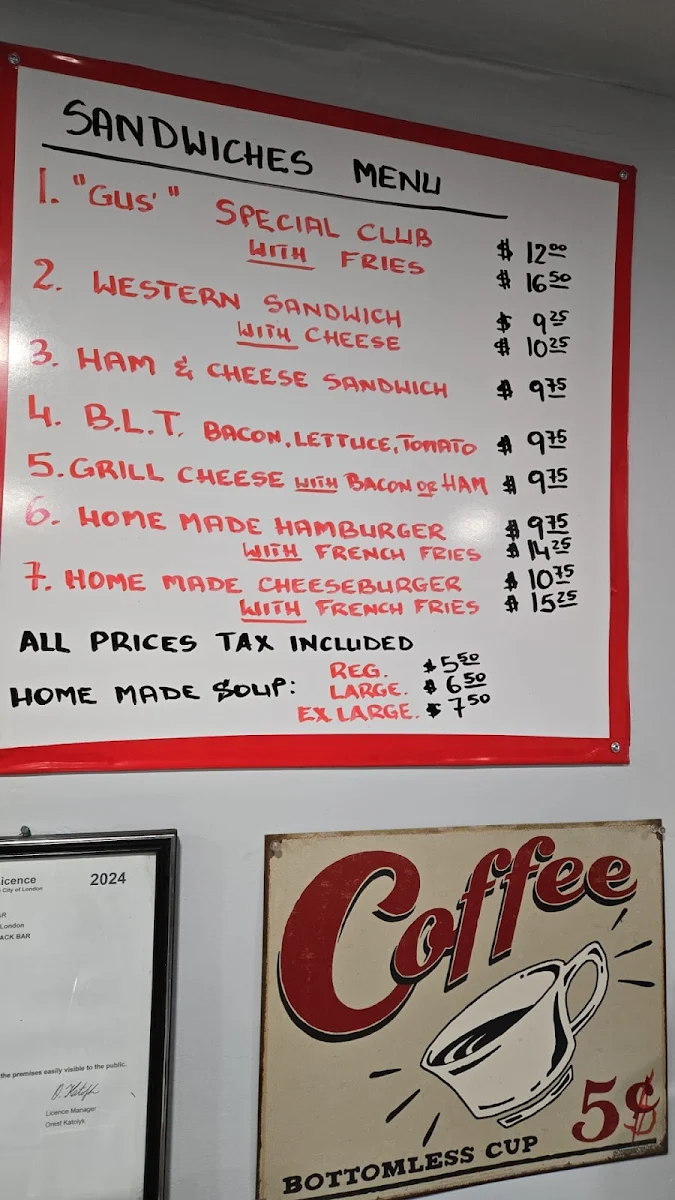 SANDWICHES MENU
1. "GUS'" SPECIAL CLUB $ 12.00
WITH FRIES $ 16.50
2. WESTERN SANDWICH $ 9.25
WITH CHEESE $ 10.25
3. HAM & CHEESE SANDWICH $ 9.75
4. B.L.T. BACON, LETTUCE, TOMATO $ 9.75
5. GRILL CHEESE WITH BACON OR HAM $ 9.75
6. HOME MADE HAMBURGER $ 9.75
WITH FRENCH FRIES $ 14.25
7. HOME MADE CHEESEBURGER $ 10.75
WITH FRENCH FRIES $ 15.25
ALL PRICES TAX INCLUDED
HOME MADE SOUP: REG. $ 5.50
LARGE. $ 6.50
EX LARGE. $ 7.50
Licence 2024
City of London
AR
London
ACK BAR
the premises easily visible to the public.
Licence Manager
Orest Katolyk
Coffee
5¢
BOTTOMLESS CUP